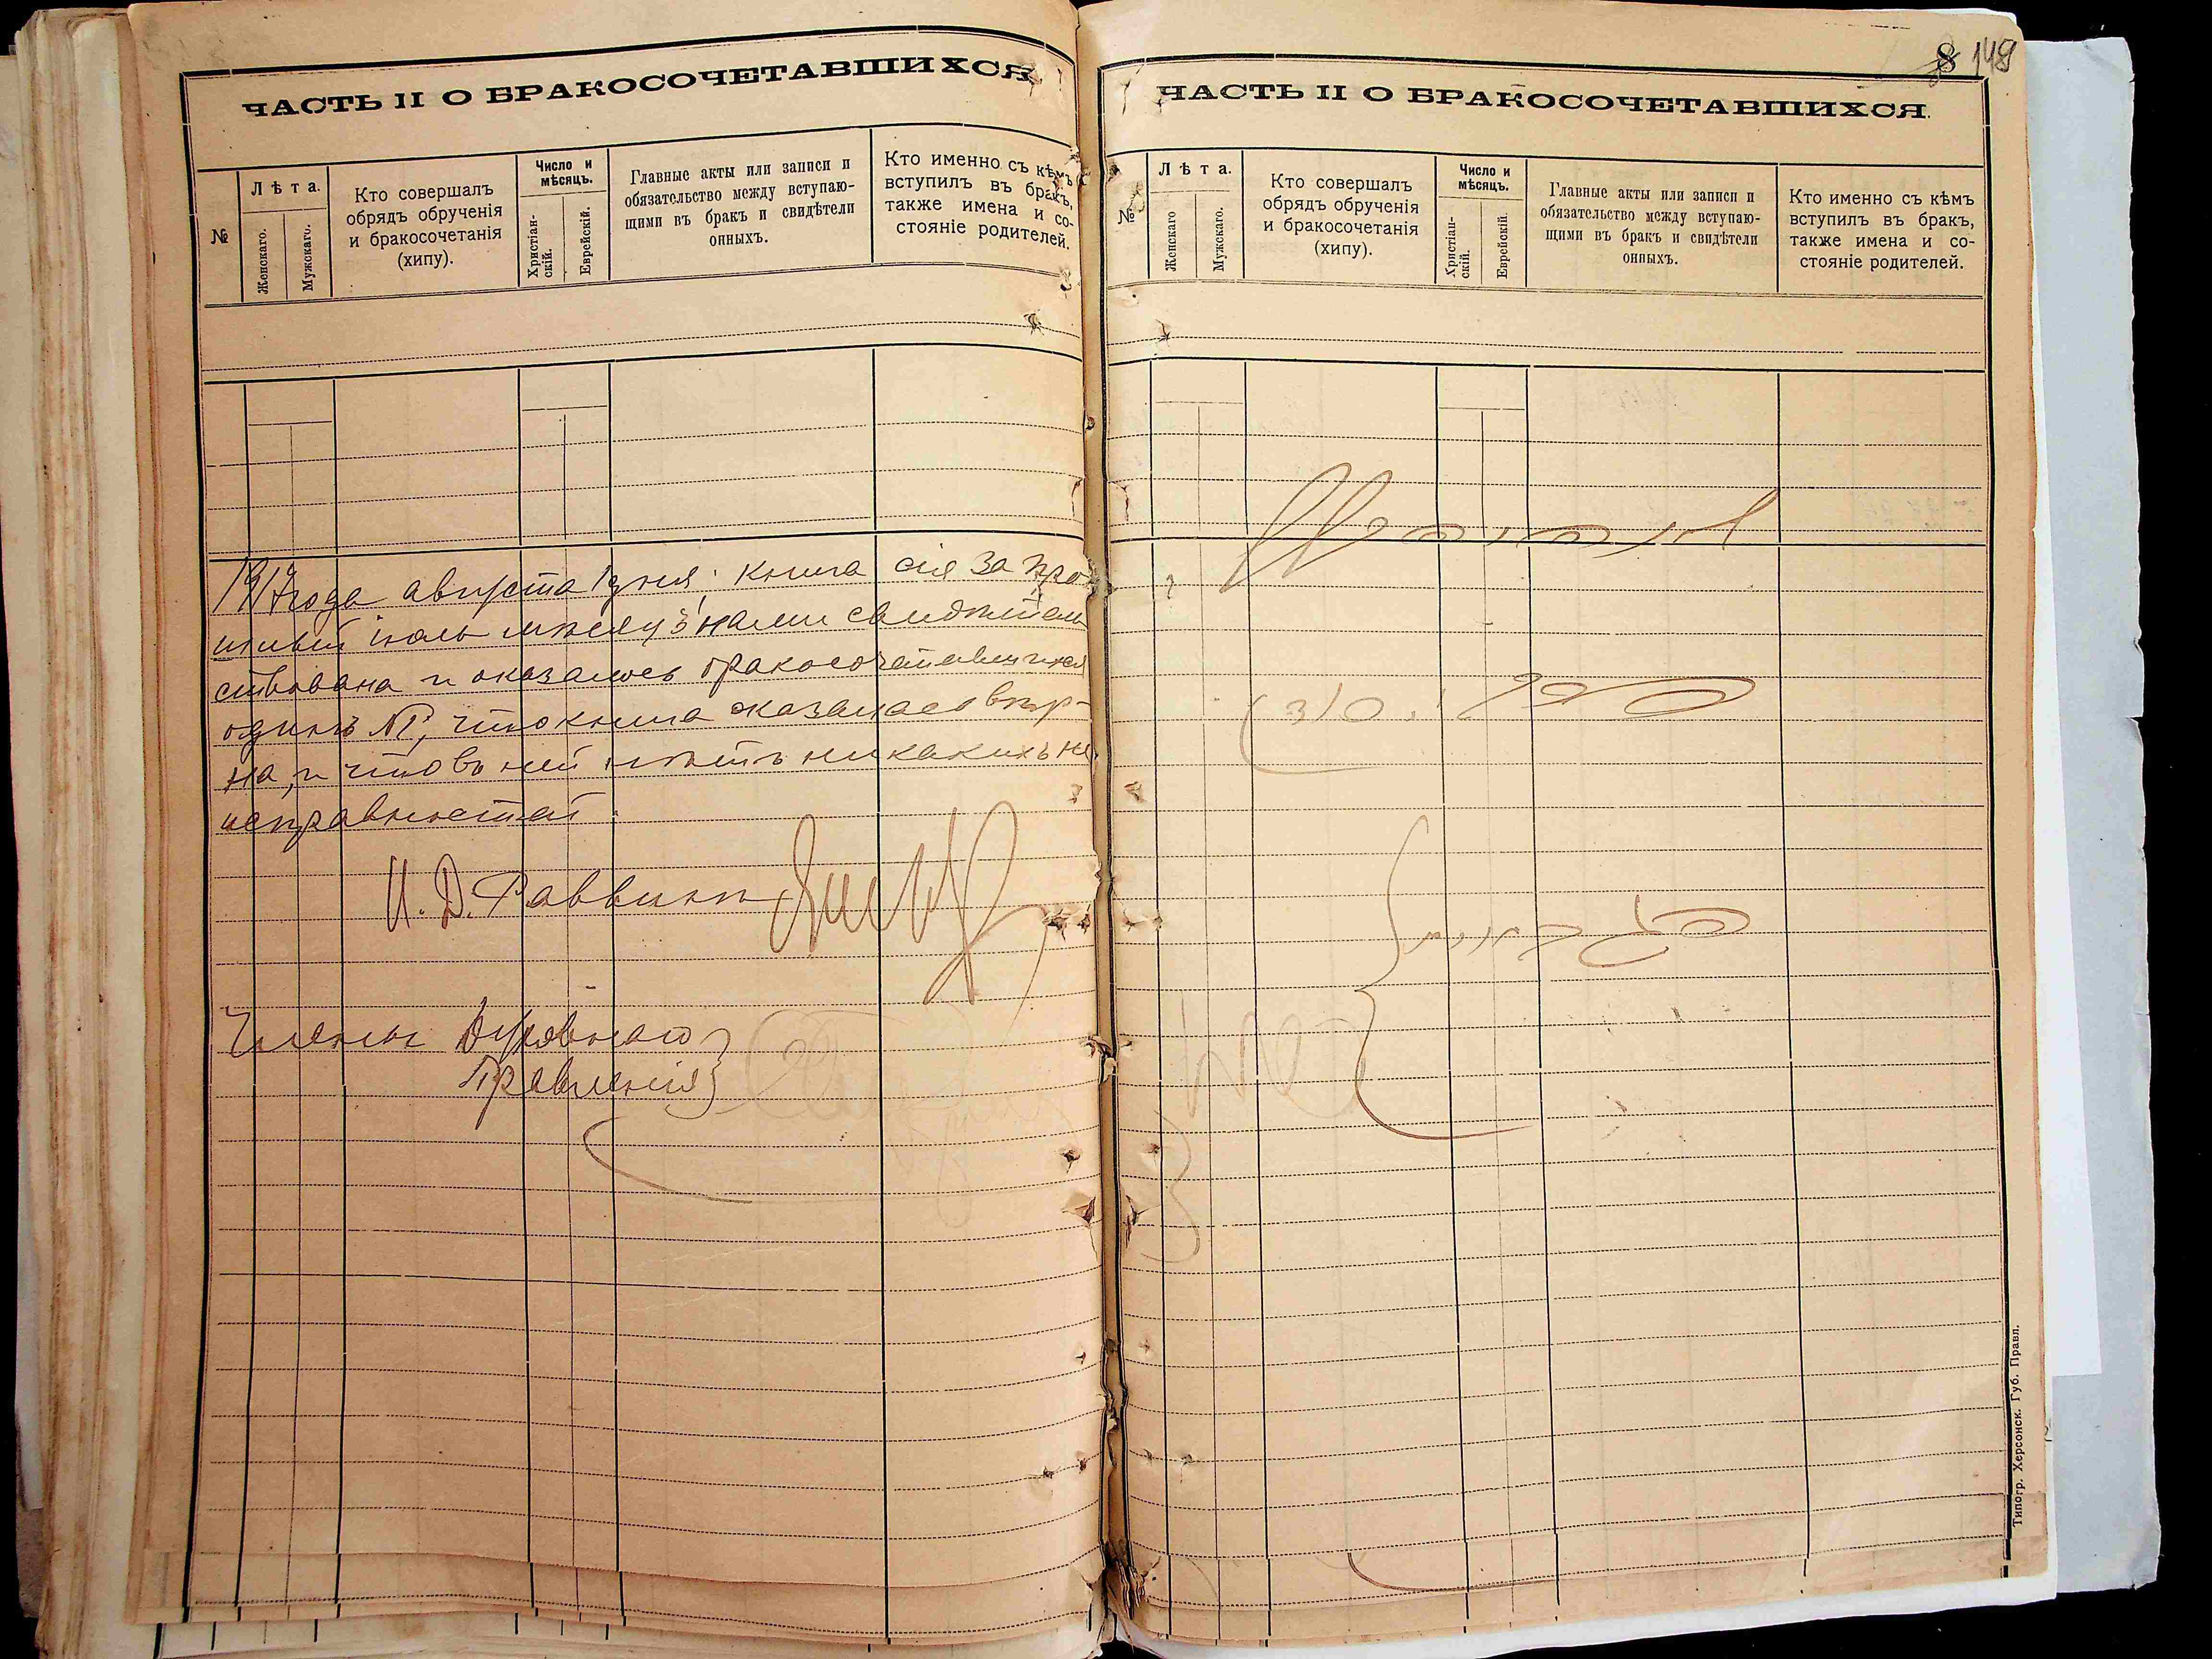 ЧАСТЬ II О БРАКОСОЧЕТАВШИХСЯ
№
Лѣта.
Женскаго.
Мужскаго.
Кто совершалъ
обрядъ обрученія
и бракосочетанія
(хипу).
Число и
мѣсяцъ.
Христіан-
скій.
Еврейскій.
Главные акты или записи и
обязательство между вступаю-
щими въ бракъ и свидѣтели
онныхъ.
Кто именно съ кѣмъ
вступилъ въ бракъ,
также имена и со-
стояніе родителей.
года августа 1 дня, книга сія за про
шлый іюль мѣсяцъ нами свидѣтель
ствована и оказалось бракосочетавшихся
одинъ №, что книга оказалась вѣр-
на, и что въ ней нѣтъ никакихъ не
исправностей.
И. Д. Раввина
Члены Духовнаго
Правленія
8 148
ЧАСТЬ II О БРАКОСОЧЕТАВШИХСЯ.
№
Лѣта.
Женскаго
Мужскаго.
Кто совершалъ
обрядъ обрученія
и бракосочетанія
(хипу).
Число и
мѣсяцъ.
Христіан-
скій.
Еврейскій.
Главные акты или записи и
обязательство между вступаю-
щими въ бракъ и свидѣтели
онныхъ.
Кто именно съ кѣмъ
вступилъ въ бракъ,
также имена и со-
стояніе родителей.
Типогр. Херсонск. Губ. Правл.